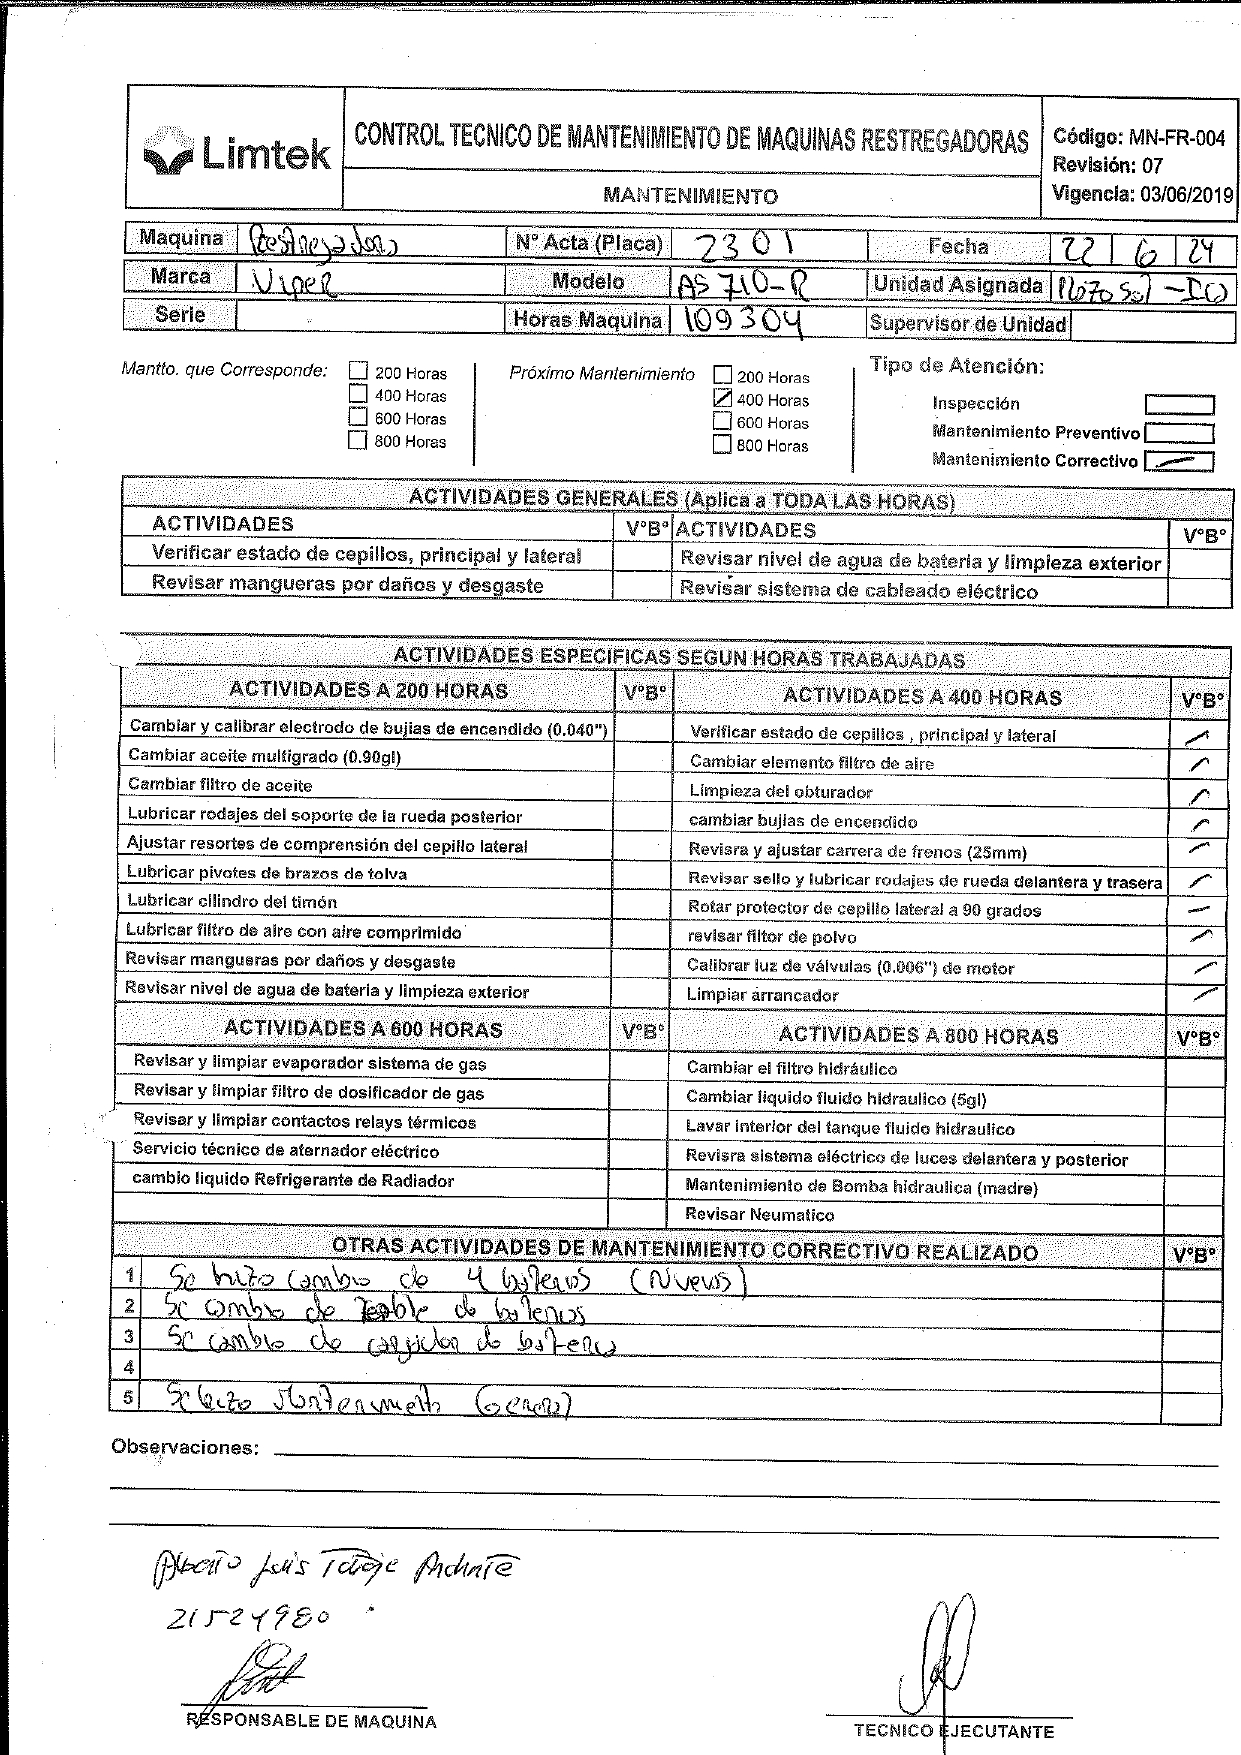 Limtek
CONTROL TECNICO DE MANTENIMIENTO DE MAQUINAS RESTREGADORAS
MANTENIMIENTO
Código: MN-FR-004
Revisión: 07
Vigencia: 03/06/2019
Maquina Restregadora N° Acta (Placa) 2301 Fecha 22 6 24
Marca Viper Modelo AS 710-R Unidad Asignada
Serie Horas Maquina 109304 Supervisor de Unidad
Mantto. que Corresponde: 200 Horas Próximo Mantenimiento 200 Horas Tipo de Atención:
400 Horas 400 Horas Inspección
600 Horas 600 Horas Mantenimiento Preventivo
800 Horas 800 Horas Mantenimiento Correctivo
ACTIVIDADES GENERALES (Aplica a TODA LAS HORAS)
ACTIVIDADES V°B° ACTIVIDADES V°B°
Verificar estado de cepillos, principal y lateral Revisar nivel de agua de bateria y limpieza exterior
Revisar mangueras por daños y desgaste Revisar sistema de cableado eléctrico
ACTIVIDADES ESPECIFICAS SEGUN HORAS TRABAJADAS
ACTIVIDADES A 200 HORAS V°B° ACTIVIDADES A 400 HORAS V°B°
Cambiar y calibrar electrodo de bujias de encendido (0.040") Verificar estado de cepillos , principal y lateral
Cambiar aceite multigrado (0.90gl) Cambiar elemento filtro de aire
Cambiar filtro de aceite Limpieza del obturador
Lubricar rodajes del soporte de la rueda posterior cambiar bujias de encendido
Ajustar resortes de comprensión del cepillo lateral Revisra y ajustar carrera de frenos (25mm)
Lubricar pivotes de brazos de tolva Revisar sello y lubricar rodajes de rueda delantera y trasera
Lubricar cilindro del timón Rotar protector de cepillo lateral a 90 grados
Lubricar filtro de aire con aire comprimido revisar filtor de polvo
Revisar mangueras por daños y desgaste Calibrar luz de válvulas (0.006") de motor
Revisar nivel de agua de bateria y limpieza exterior Limpiar arrancador
ACTIVIDADES A 600 HORAS V°B° ACTIVIDADES A 800 HORAS V°B°
Revisar y limpiar evaporador sistema de gas Cambiar el filtro hidráulico
Revisar y limpiar filtro de dosificador de gas Cambiar liquido fluido hidraulico (5gl)
Revisar y limpiar contactos relays térmicos Lavar interior del tanque fluido hidraulico
Servicio técnico de aternador eléctrico Revisra sistema eléctrico de luces delantera y posterior
cambio liquido Refrigerante de Radiador Mantenimiento de Bomba hidraulica (madre)
Revisar Neumatico
OTRAS ACTIVIDADES DE MANTENIMIENTO CORRECTIVO REALIZADO V°B°
1 Se hizo cambio de 4 baterias (Nuevas)
2 Se cambio de de baterias
3 Se cambio de cargador de bateria
4
5 Se hizo Mantenimiento General
Observaciones:
Alberto Luis Tataje
21524980
RESPONSABLE DE MAQUINA TECNICO EJECUTANTE